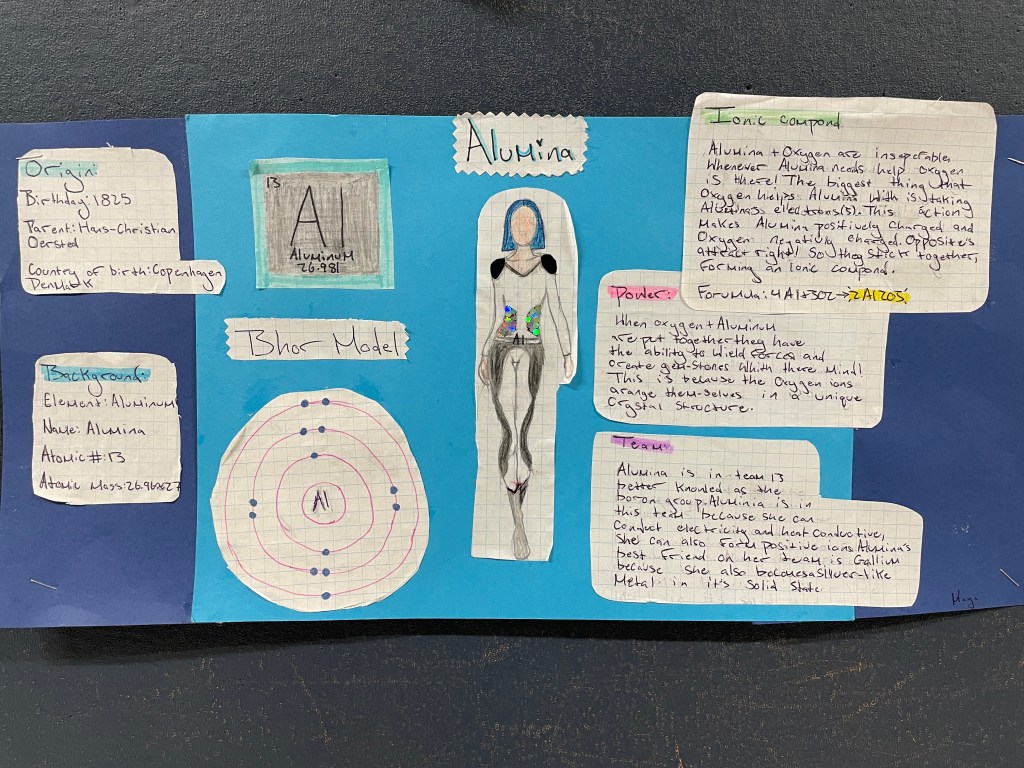 Origin:
Birthday: 1825
Parent: Hans-Christian
Oersted
Country of birth: Copenhagen
Denmark
Background:
Element: Aluminum
Name: Alumina
Atomic #: 13
Atomic Mass: 26.96
13
Al
Aluminum
26.981
Bhor Model
Al
Alumina
Al
Ionic compond
Alumina + Oxygen are inseperable
Whenever Alumina needs help oxygen
is there! The biggest thing that
Oxygen helps Alumina with is taking
Alumina's electrons(s). This action
Makes Alumina positively charged and
Oxygen negativly charged. Opposite's
attract right! So they stick together,
forming an Ionic compond.
Forumula: 4Al+3O2→2Al2O3
Power:
When oxygen + Aluminum
are put together they have
the ability to wield forces and
create gem-stones whith there mind!
This is because the Oxygen ions
arange them-selves in a unique
Crystal structure.
Team:
Alumina is in team 13
better knowled as the
boron group. Aluminia is in
this team because she can
conduct electricity and heat conductive,
She can also form positive ions Alumina's
best friend on her team is Gallium
because she also becomes a silver-like
Metal in it's solid state.
Maya